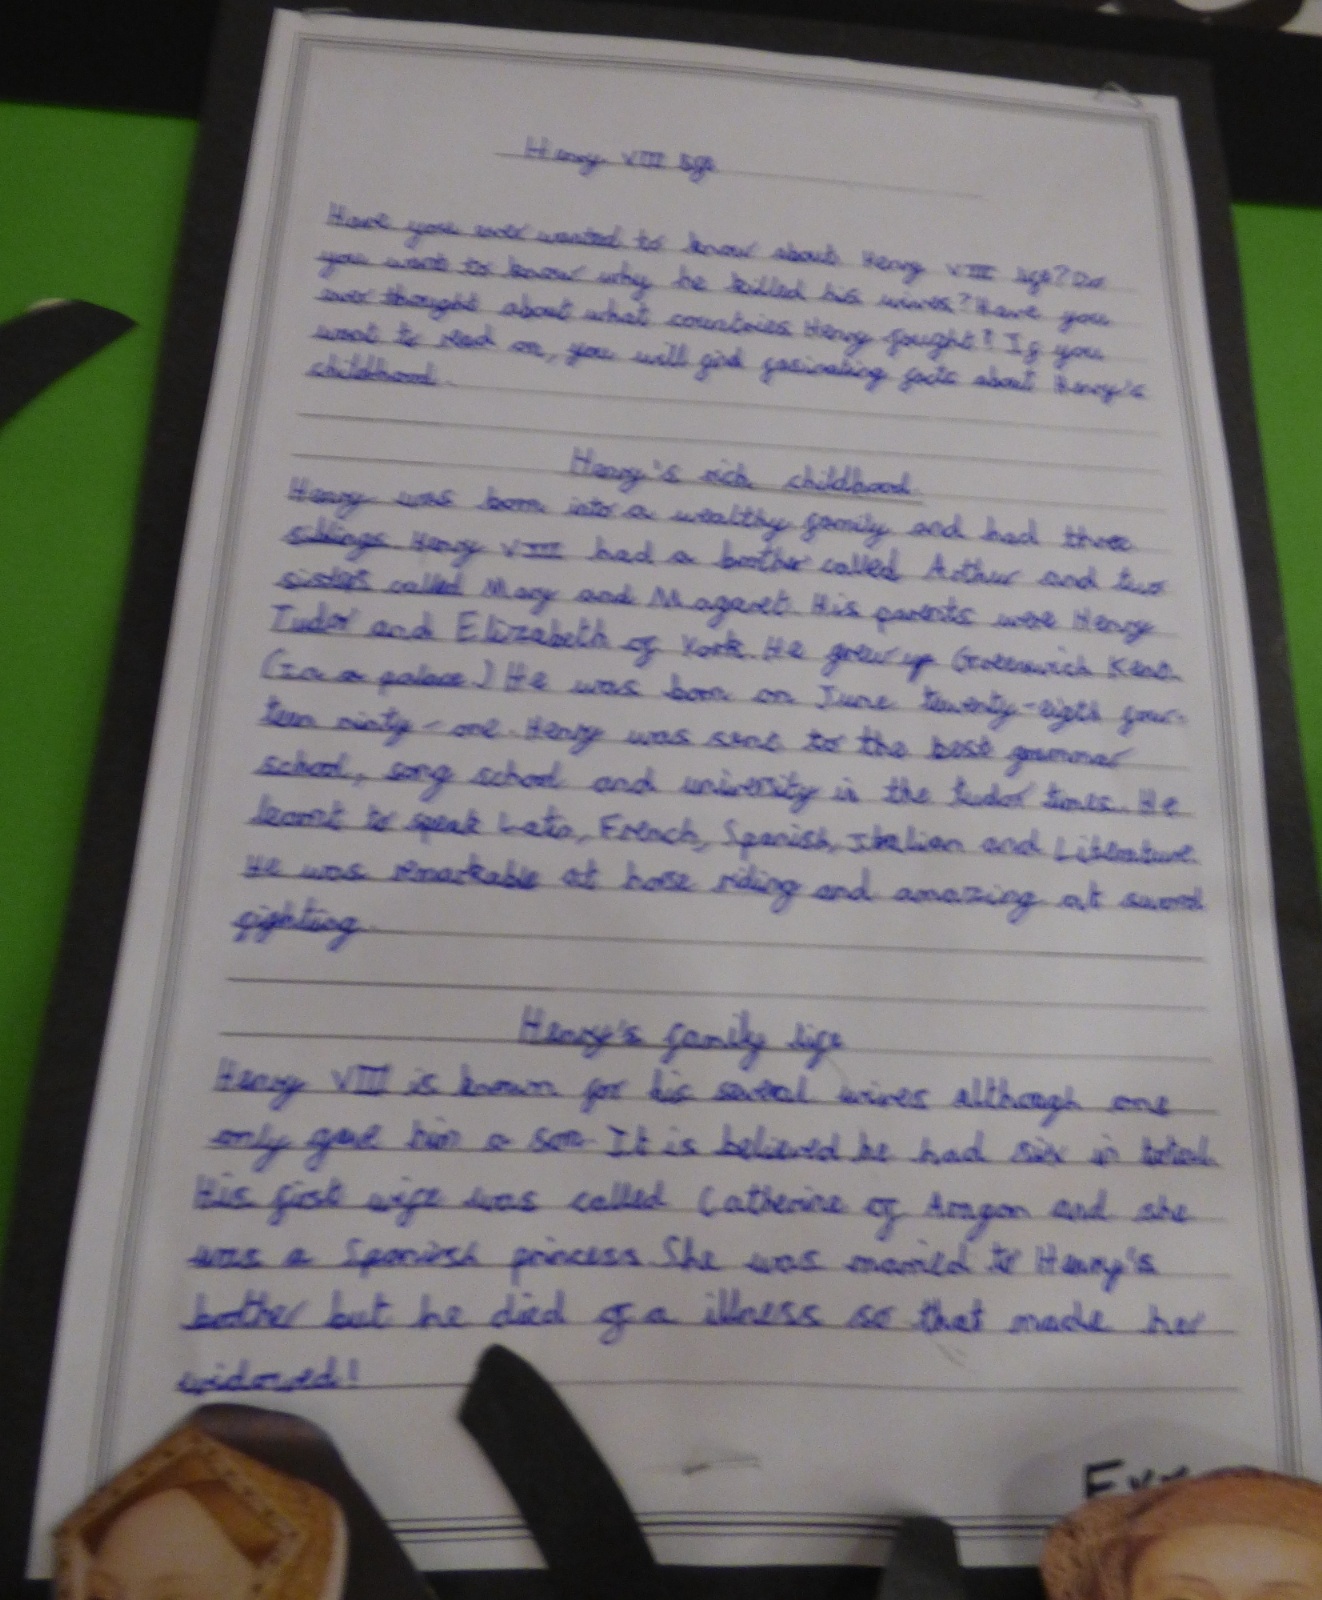 Henry VIII life
Have you ever wanted to know about Henry VIII life? Do
you want to know why he killed his wives? Have you
ever thought about what countries Henry fought? If you
want to read on, you will find fasinating facts about Henry's
childhood.
Henry's rich childhood
Henry was born into a wealthy family and had three
siblings. Henry VIII had a brother called Arthur and two
sisters called Mary and Magaret. His parents were Henry
Tudor and Elizabeth of York. He grew up Greenwich Kent.
(In a palace.) He was born on June twenty-eigth four-
teen ninty-one. Henry was sent to the best grammar
school, song school and university in the tudor times. He
learnt to speak Latin, French, Spanish, Italian and Literature.
He was remarkable at horse riding and amazing at sword
fighting.
Henry's family life
Henry VIII is known for his several wives although one
only gave him a son. It is believed he had six in total.
His first wife was called Catherine of Aragon and she
was a Spanish princess. She was married to Henry's
brother but he died of a illness so that made her
widowed!